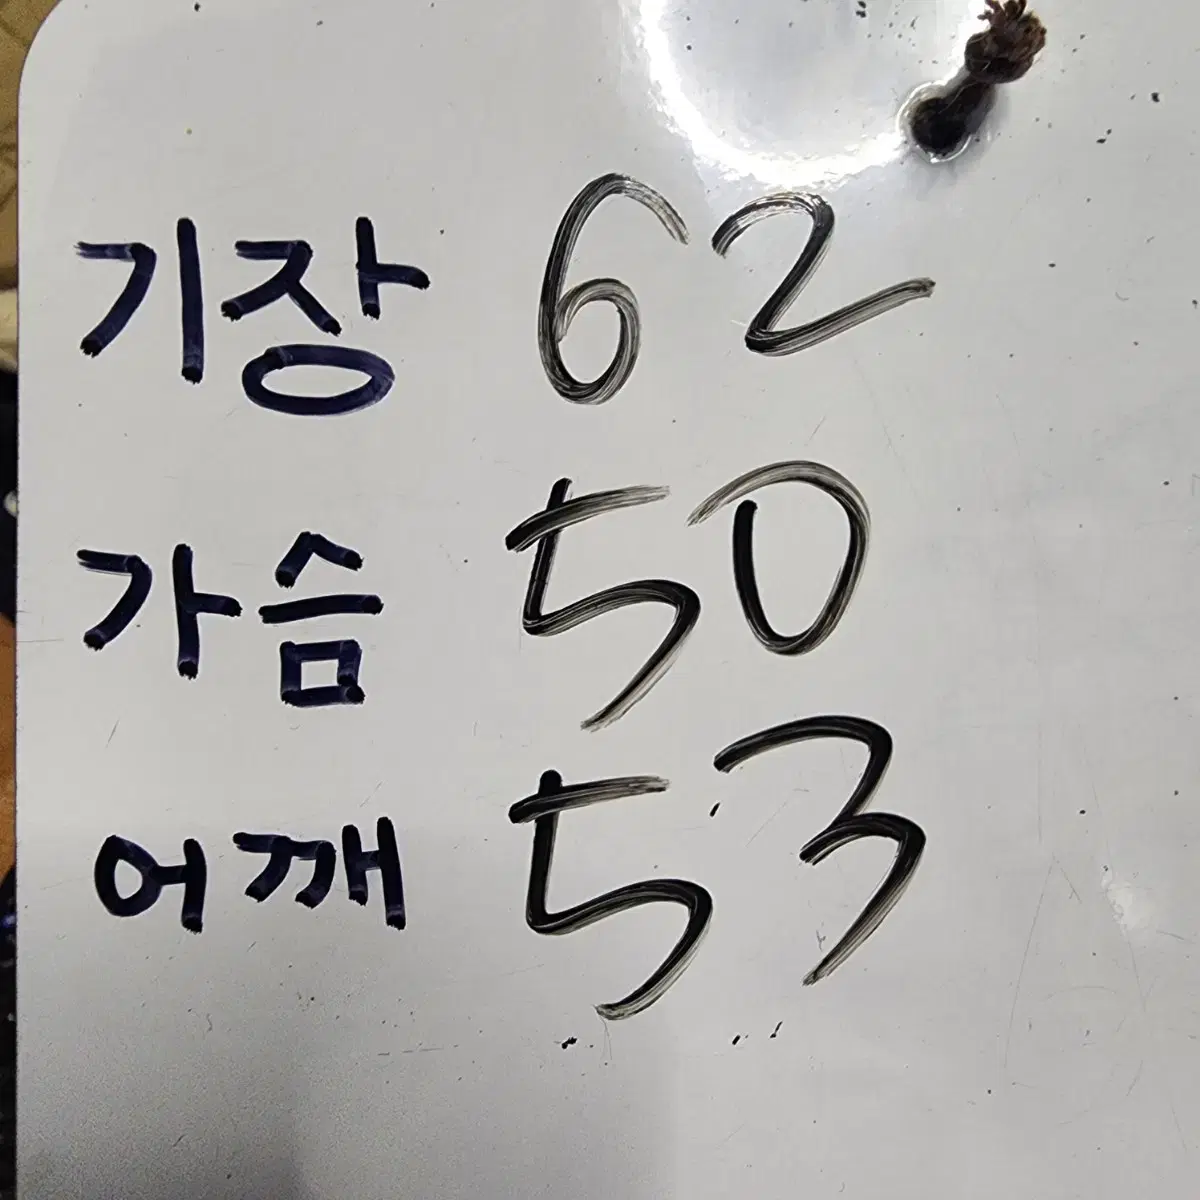 기장 62
가슴 50
어깨 53